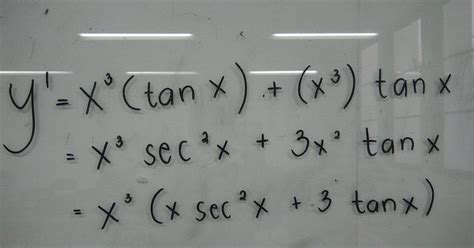 y' = x³ (tan x) + (x³) tan x
= x³ sec² x + 3x² tan x
= x³ (x sec² x + 3 tan x)